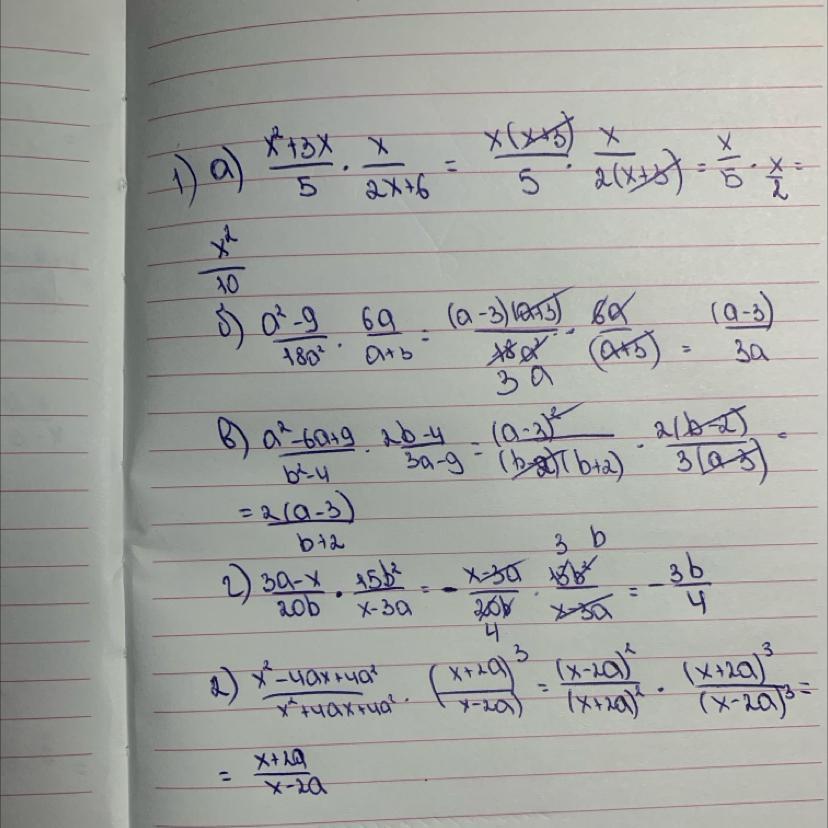 1) а) (x²+3x)/5 · x/(2x+6) = x(x+3)/5 · x/(2(x+3)) = x/5 · x/2 =
x²/10
б) (a²-9)/(18a²) · 6a/(a+3) = (a-3)(a+3)/(18a²) · 6a/(a+3) = (a-3)/(3a)
3 a
в) (a²-6a+9)/(b²-4) · (2b-4)/(3a-9) = (a-3)²/((b-2)(b+2)) · 2(b-2)/(3(a-3)) =
= 2(a-3)/(b+2)
3 b
г) (3a-x)/(20b) · 15b²/(x-3a) = - (x-3a)/(20b) · 15b²/(x-3a) = - 3b/4
4
д) (x²-4ax+4a²)/(x²+4ax+4a²) · ((x+2a)/(x-2a))³ = (x-2a)²/(x+2a)² · (x+2a)³/(x-2a)³ =
= (x+2a)/(x-2a)